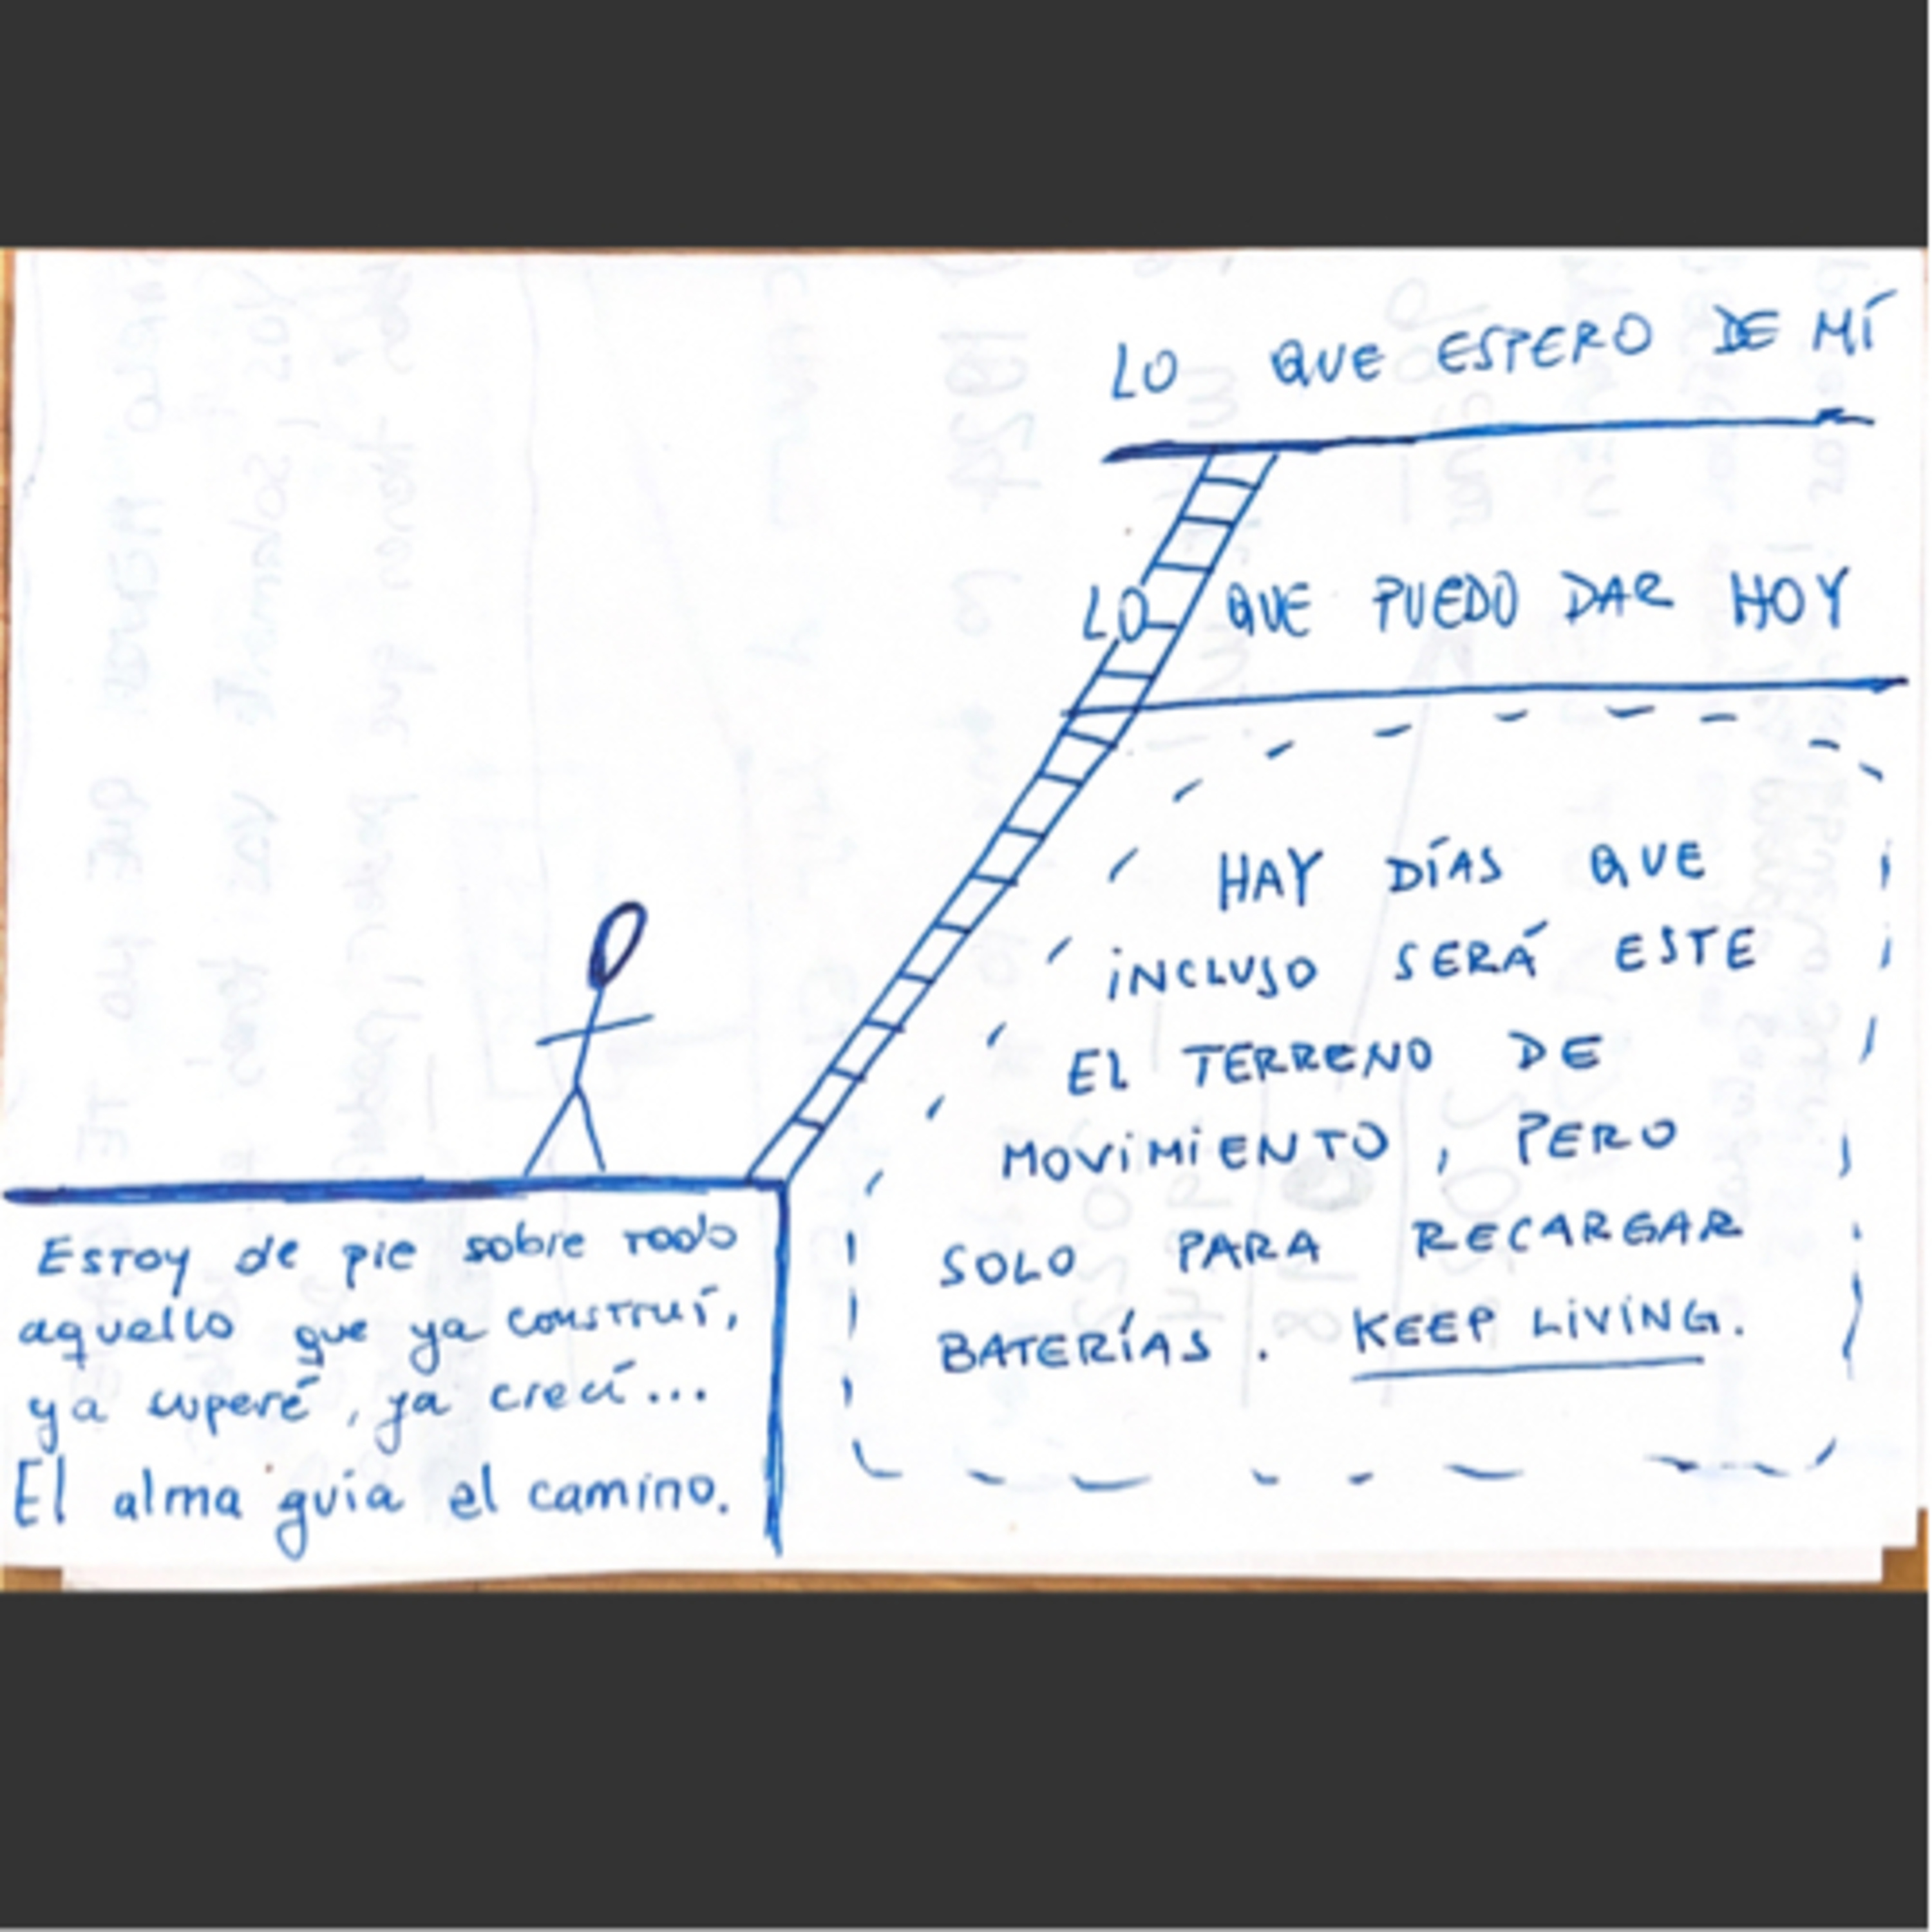 LO QUE ESPERO DE MÍ
LO QUE PUEDO DAR HOY
HAY DÍAS QUE
INCLUSO SERÁ ESTE
EL TERRENO DE
MOVIMIENTO, PERO
SOLO PARA RECARGAR
BATERÍAS. KEEP LIVING.
Estoy de pie sobre todo
aquello que ya construí,
ya superé, ya crecí...
El alma guia el camino.